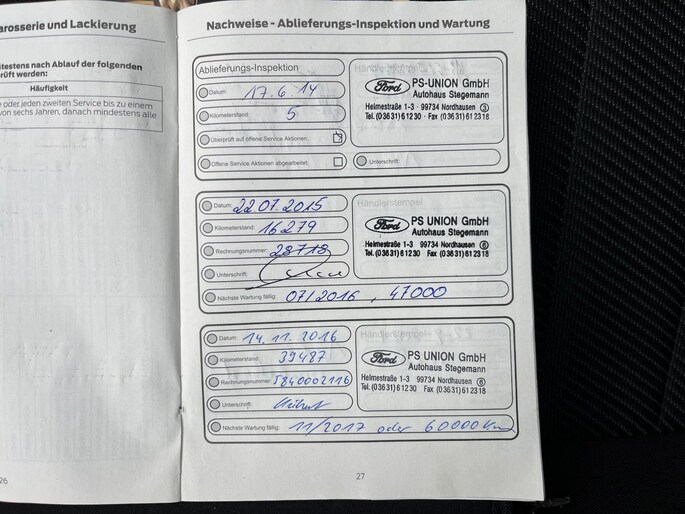 arosserie und Lackierung
Nachweise - Ablieferungs-Inspektion und Wartung
itestens nach Ablauf der folgenden
rüft werden:
Häufigkeit
oder jeden zweiten Service bis zu einem
von sechs Jahren, danach mindestens alle
Ablieferungs-Inspektion
Datum: 17.6 14
Kilometerstand: 5
Überprüft auf offene Service Aktionen:
Offene Service Aktionen abgearbeitet:
Ford PS-UNION GmbH
Autohaus Stegemann
Helmestraße 1-3 · 99734 Nordhausen 3
Tel. (0 36 31) 6 12 30 · Fax (0 36 31) 6 23 18
Unterschrift:
Datum: 22.07.2015
Kilometerstand: 16279
Rechnungsnummer: 28718
Unterschrift:
Händlerstempel
Ford PS UNION GmbH
Autohaus Stegemann
Helmestraße 1-3 99734 Nordhausen 6
Tel. (0 36 31) 6 12 30 Fax (0 36 31) 6 23 18
Nächste Wartung fällig: 07/2016 , 47000
Datum: 14.11.2016
Kilometerstand: 39487
Rechnungsnummer: 5840002116
Unterschrift:
Händlerstempel
Ford PS UNION GmbH
Autohaus Stegemann
Helmestraße 1-3 99734 Nordhausen 6
Tel. (0 36 31) 6 12 30 Fax (0 36 31) 6 23 18
Nächste Wartung fällig: 11/2017 oder 60000 Km
26
27